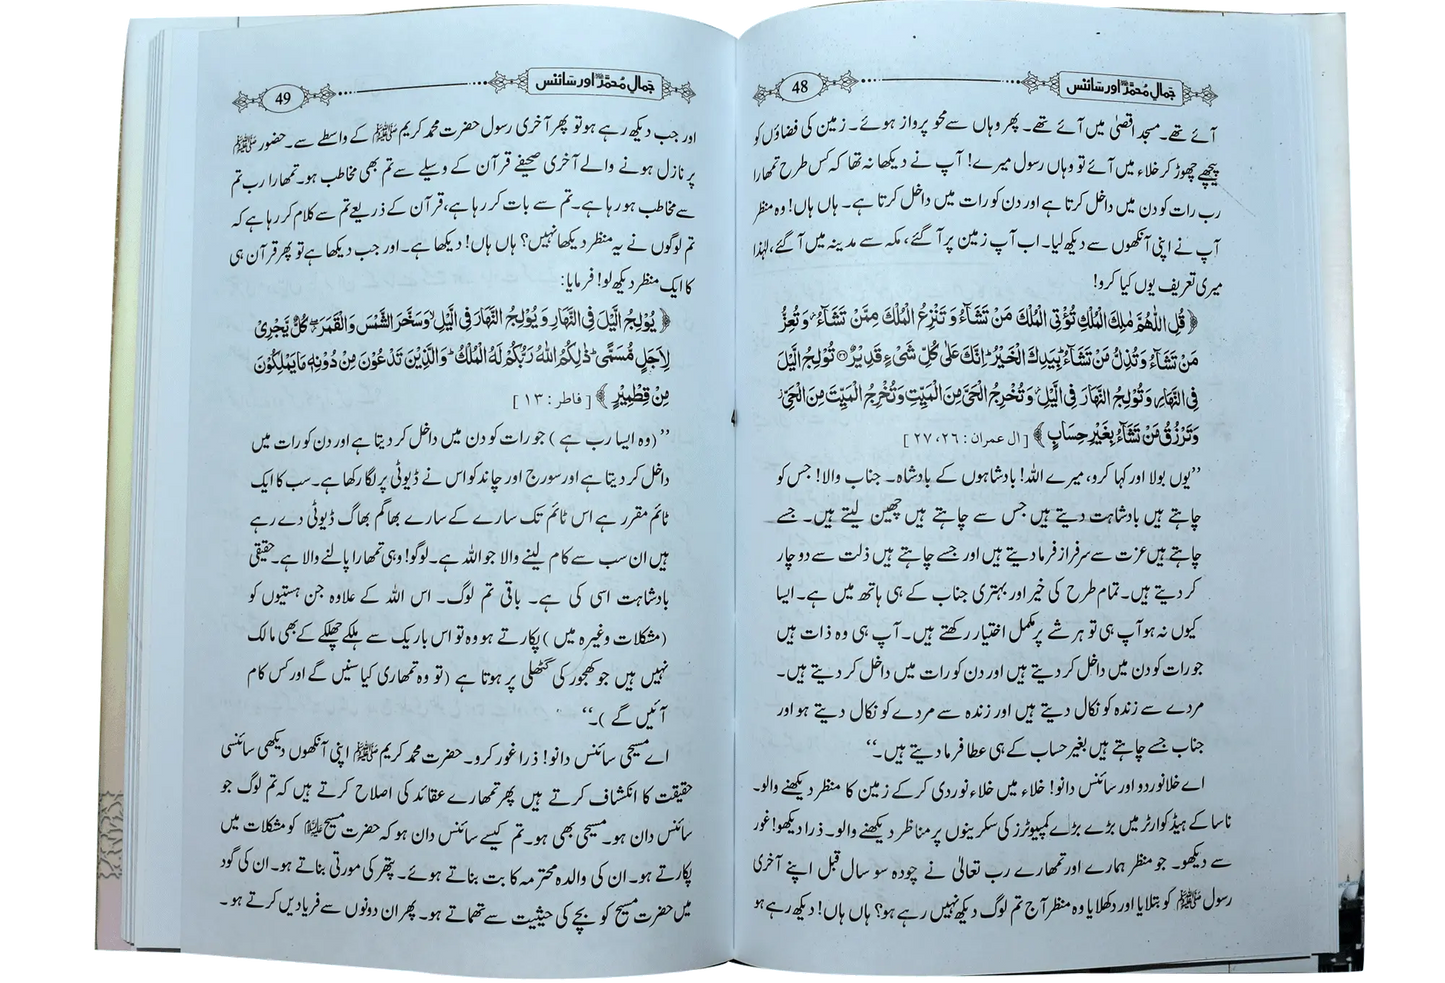 جمالِ محمدؐ اور سائنس
48
آئے تھے۔ مسجد اقصیٰ میں آئے تھے۔ پھر وہاں سے محو پرواز ہوئے۔ زمین کی فضاؤں کو
پیچھے چھوڑ کر خلاء میں آئے تو وہاں رسول میرے! آپ نے دیکھا نہ تھا کہ کس طرح تمھارا
رب رات کو دن میں داخل کرتا ہے اور دن کو رات میں داخل کرتا ہے۔ ہاں ہاں! وہ منظر
آپ نے اپنی آنکھوں سے دیکھ لیا۔ اب آپ زمین پر آ گئے، مکہ سے مدینہ میں آ گئے، لہٰذا
میری تعریف یوں کیا کرو!
﴿ قُلِ اللّٰهُمَّ مٰلِكَ الْمُلْكِ تُؤْتِى الْمُلْكَ مَنْ تَشَآءُ وَ تَنْزِعُ الْمُلْكَ مِمَّنْ تَشَآءُ وَ تُعِزُّ
مَنْ تَشَآءُ وَ تُذِلُّ مَنْ تَشَآءُ بِيَدِكَ الْخَيْرُ اِنَّكَ عَلٰى كُلِّ شَىْءٍ قَدِيْرٌ ۝ تُوْلِجُ الَّيْلَ
فِى النَّهَارِ وَ تُوْلِجُ النَّهَارَ فِى الَّيْلِ وَ تُخْرِجُ الْحَىَّ مِنَ الْمَيِّتِ وَ تُخْرِجُ الْمَيِّتَ مِنَ الْحَىِّ
وَ تَرْزُقُ مَنْ تَشَآءُ بِغَيْرِ حِسَابٍ ﴾ [ ال عمران : ۲۶، ۲۷ ]
’’یوں بولا اور کہا کرو، میرے اللہ! بادشاہوں کے بادشاہ۔ جناب والا! جس کو
چاہتے ہیں بادشاہت دیتے ہیں جس سے چاہتے ہیں چھین لیتے ہیں۔ جسے
چاہتے ہیں عزت سے سرفراز فرما دیتے ہیں اور جسے چاہتے ہیں ذلت سے دو چار
کر دیتے ہیں۔ تمام طرح کی خیر اور بہتری جناب کے ہی ہاتھ میں ہے۔ ایسا
کیوں نہ ہو آپ ہی تو ہر شے پر مکمل اختیار رکھتے ہیں۔ آپ ہی وہ ذات ہیں
جو رات کو دن میں داخل کر دیتے ہیں اور دن کو رات میں داخل کر دیتے ہیں۔
مردے سے زندہ کو نکال دیتے ہیں اور زندہ سے مردے کو نکال دیتے ہو اور
جناب جسے چاہتے ہیں بغیر حساب کے ہی عطا فرما دیتے ہیں۔‘‘
اے خلا نوردو اور سائنس دانو! خلاء میں خلاء نوردی کر کے زمین کا منظر دیکھنے والو۔
ناسا کے ہیڈ کوارٹر میں بڑے بڑے کمپیوٹرز کی سکرینوں پر مناظر دیکھنے والو۔ ذرا دیکھو! غور
سے دیکھو۔ جو منظر ہمارے اور تمھارے رب تعالیٰ نے چودہ سو سال قبل اپنے آخری
رسول ﷺ کو بتلایا اور دکھلایا وہ منظر آج تم لوگ دیکھ نہیں رہے ہو؟ ہاں ہاں! دیکھ رہے ہو
جمالِ محمدؐ اور سائنس
49
اور جب دیکھ رہے ہو تو پھر آخری رسول حضرت محمد کریم ﷺ کے واسطے سے۔ حضور ﷺ
پر نازل ہونے والے آخری صحیفے قرآن کے وسیلے سے تم بھی مخاطب ہو۔ تمھارا رب تم
سے مخاطب ہو رہا ہے۔ تم سے بات کر رہا ہے، قرآن کے ذریعے تم سے کلام کر رہا ہے کہ
تم لوگوں نے یہ منظر دیکھا نہیں؟ ہاں ہاں! دیکھا ہے۔ اور جب دیکھا ہے تو پھر قرآن ہی
کا ایک منظر دیکھ لو! فرمایا:
﴿ يُوْلِجُ الَّيْلَ فِى النَّهَارِ وَ يُوْلِجُ النَّهَارَ فِى الَّيْلِ وَ سَخَّرَ الشَّمْسَ وَ الْقَمَرَ كُلٌّ يَّجْرِىْ
لِاَجَلٍ مُّسَمًّى ذٰلِكُمُ اللّٰهُ رَبُّكُمْ لَهُ الْمُلْكُ وَ الَّذِيْنَ تَدْعُوْنَ مِنْ دُوْنِهٖ مَا يَمْلِكُوْنَ
مِنْ قِطْمِيْرٍ ﴾ [ فاطر : ۱۳ ]
’’(وہ ایسا رب ہے ) جو رات کو دن میں داخل کر دیتا ہے اور دن کو رات میں
داخل کر دیتا ہے اور سورج اور چاند کو اس نے ڈیوٹی پر لگا رکھا ہے۔ سب کا ایک
ٹائم مقرر ہے اس ٹائم تک سارے کے سارے بھاگم بھاگ ڈیوٹی دے رہے
ہیں ان سب سے کام لینے والا جو اللہ ہے۔ لوگو! وہی تمھارا پالنے والا ہے۔ حقیقی
بادشاہت اسی کی ہے۔ باقی تم لوگ۔ اس اللہ کے علاوہ جن ہستیوں کو
(مشکلات وغیرہ میں ) پکارتے ہو وہ تو اس باریک سے ہلکے چھلکے کے بھی مالک
نہیں ہیں جو کھجور کی گٹھلی پر ہوتا ہے (تو وہ تمھاری کیا سنیں گے اور کس کام
آئیں گے )۔‘‘
اے مسیحی سائنس دانو! ذرا غور کرو۔ حضرت محمد کریم ﷺ اپنی آنکھوں دیکھی سائنسی
حقیقت کا انکشاف کرتے ہیں پھر تمھارے عقائد کی اصلاح کرتے ہیں کہ تم لوگ جو
سائنس دان ہو۔ مسیحی بھی ہو۔ تم کیسے سائنس دان ہو کہ حضرت مسیح علیہ السلام کو مشکلات میں
پکارتے ہو۔ ان کی والدہ محترمہ کا بت بناتے ہوئے۔ پتھر کی مورتی بناتے ہو۔ ان کی گود
میں حضرت مسیح کو بچے کی حیثیت سے تھماتے ہو۔ پھر ان دونوں سے فریادیں کرتے ہو۔